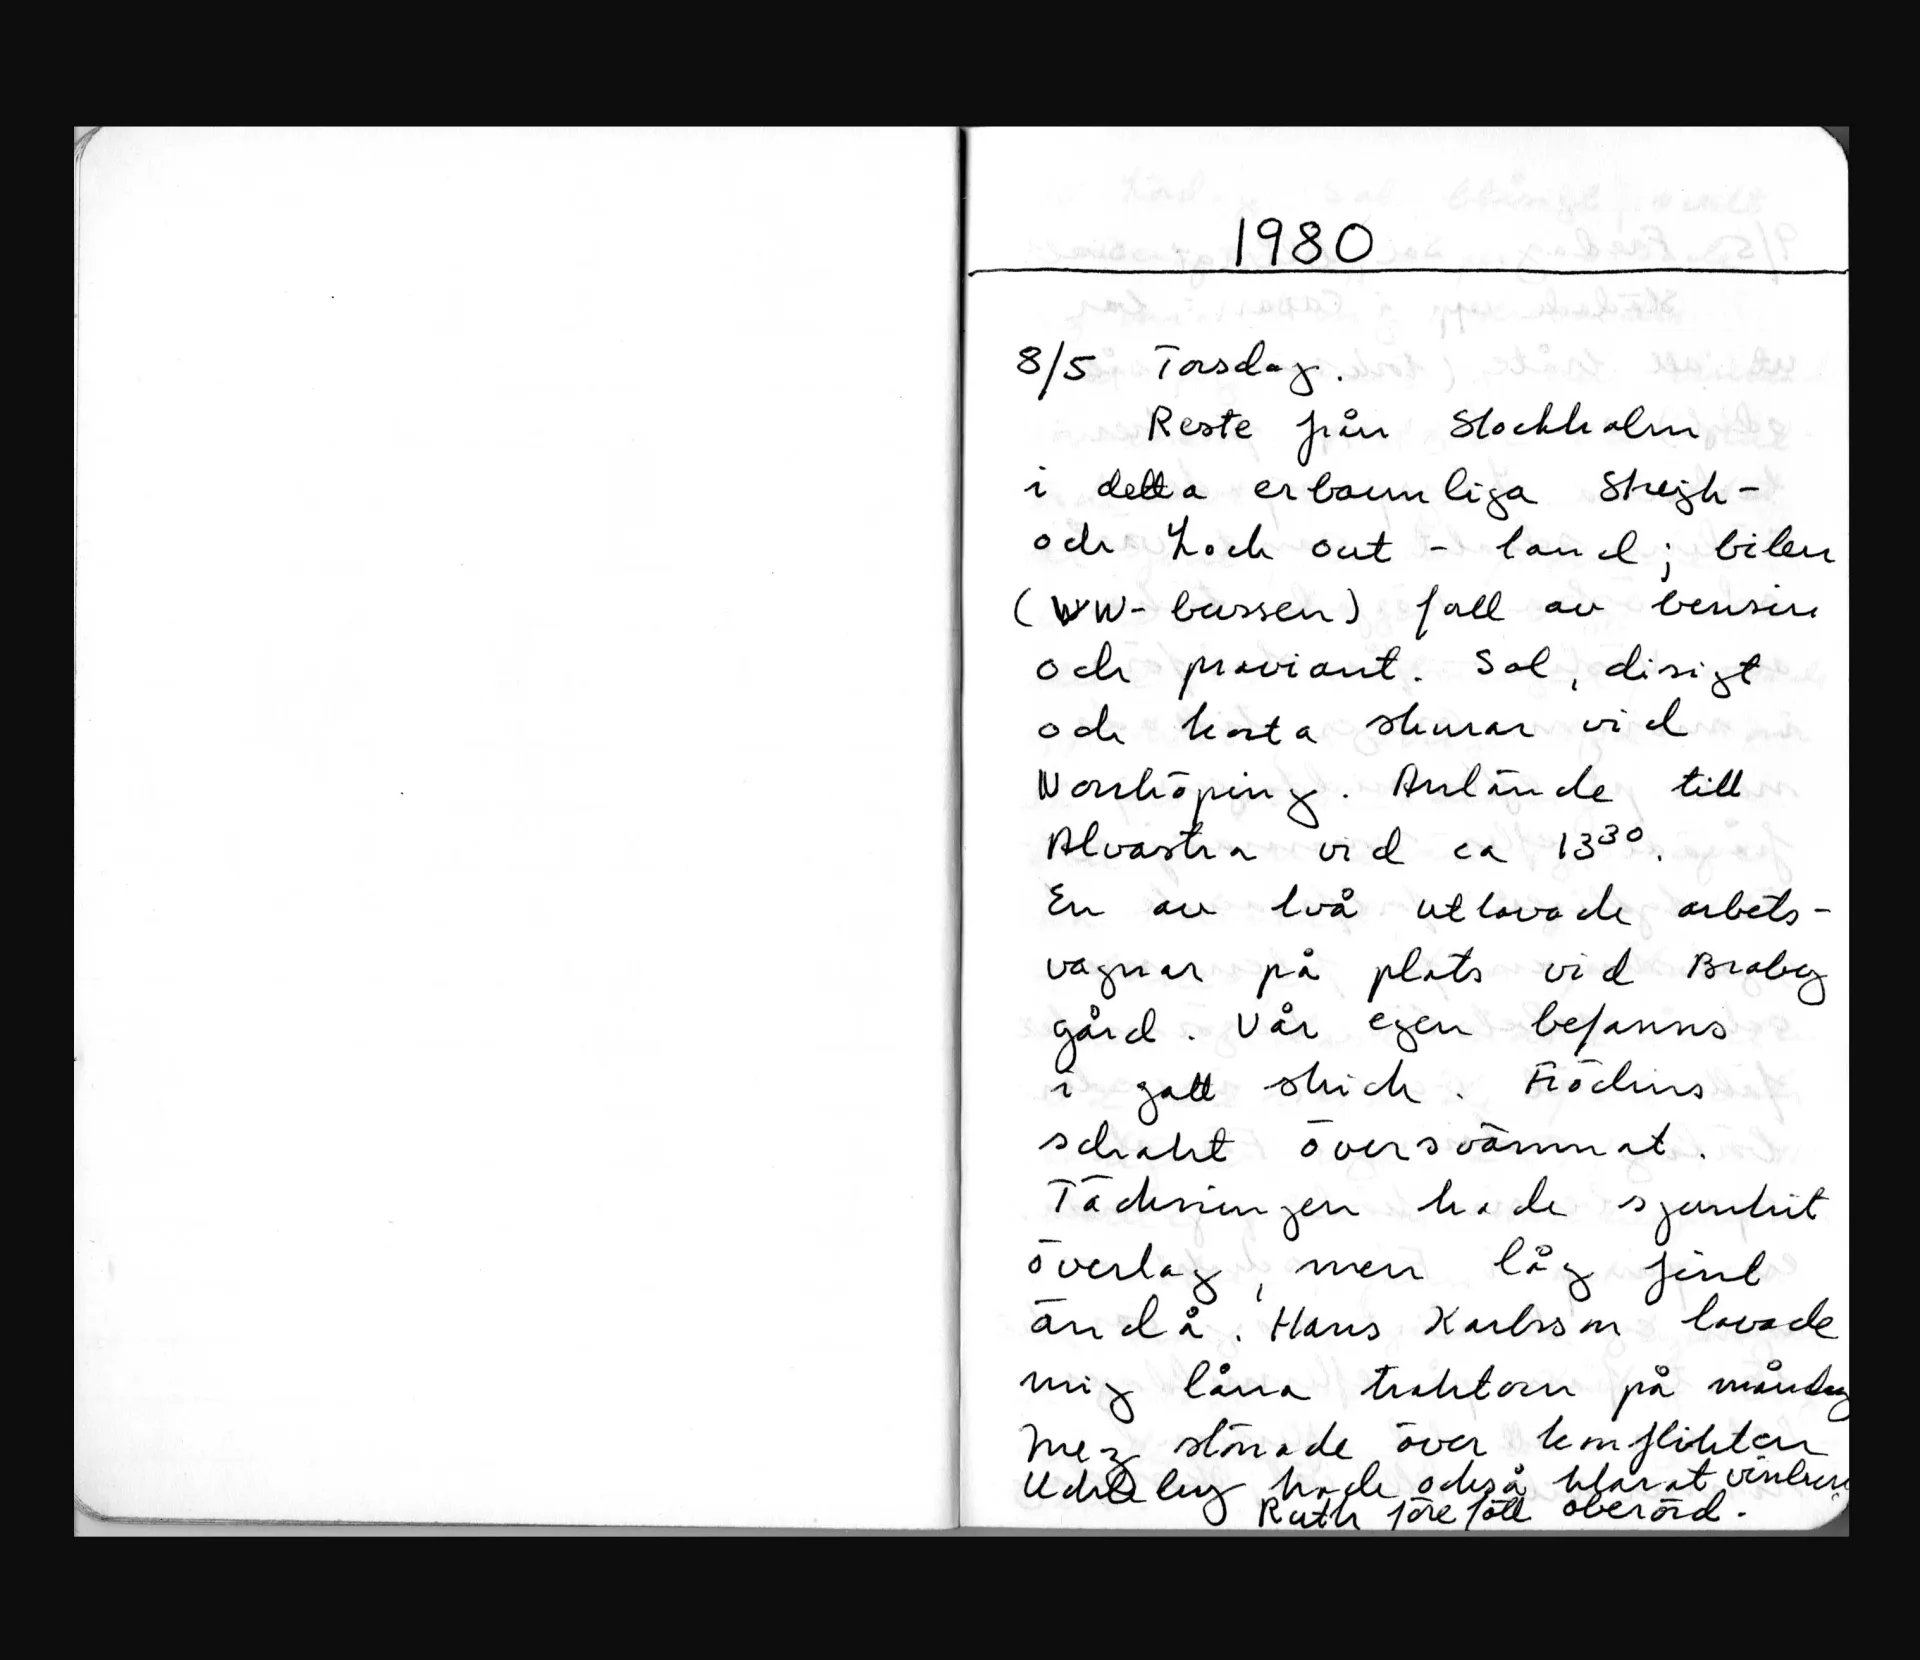 1980
8/5 Torsdag.
Reste från Stockholm
i detta erbarmliga Strejk-
och Lock out - land; bilen
(VW-bussen) full av bensin
och proviant. Sol, disigt
och korta skurar vid
Norrköping. Anlände till
Alvastra vid ca 13³⁰.
En av två utlovade arbets-
vagnar på plats vid Broby
gård. Vår egen befanns
i gott skick. Frödins
schakt översvämmat.
Täckningen hade sjunkit
överlag, men låg fint
ändå. Hans Karlsson lovade
mig låna traktorn på måndag
men stönade över konflikten
hade också klarat vintern
Ruth föreföll oberörd.